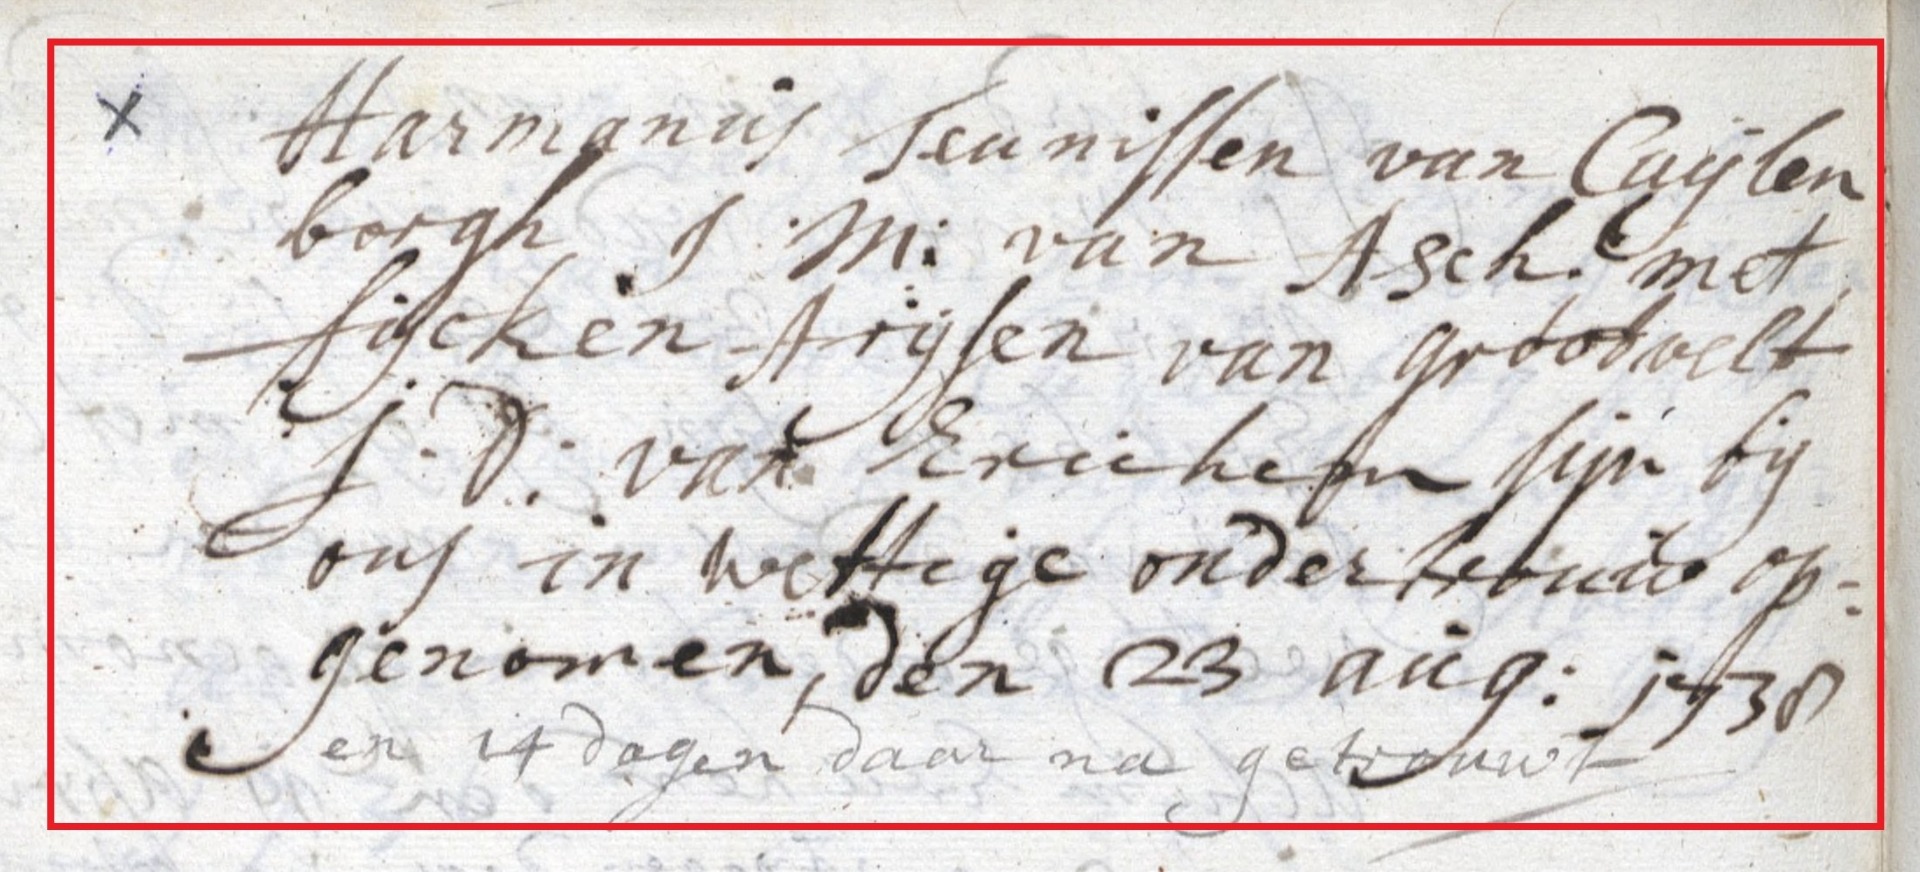 x Harmanus Teunissen van Cuijlen
borgh J. M: van Asch. met
fijcken Arijsen van grootvelt
J. D: van Erichem sijn bij
ons in wettige ondertrouw op=
genomen, den 23 aug: 1738
en 14 dagen daar na getrouwt